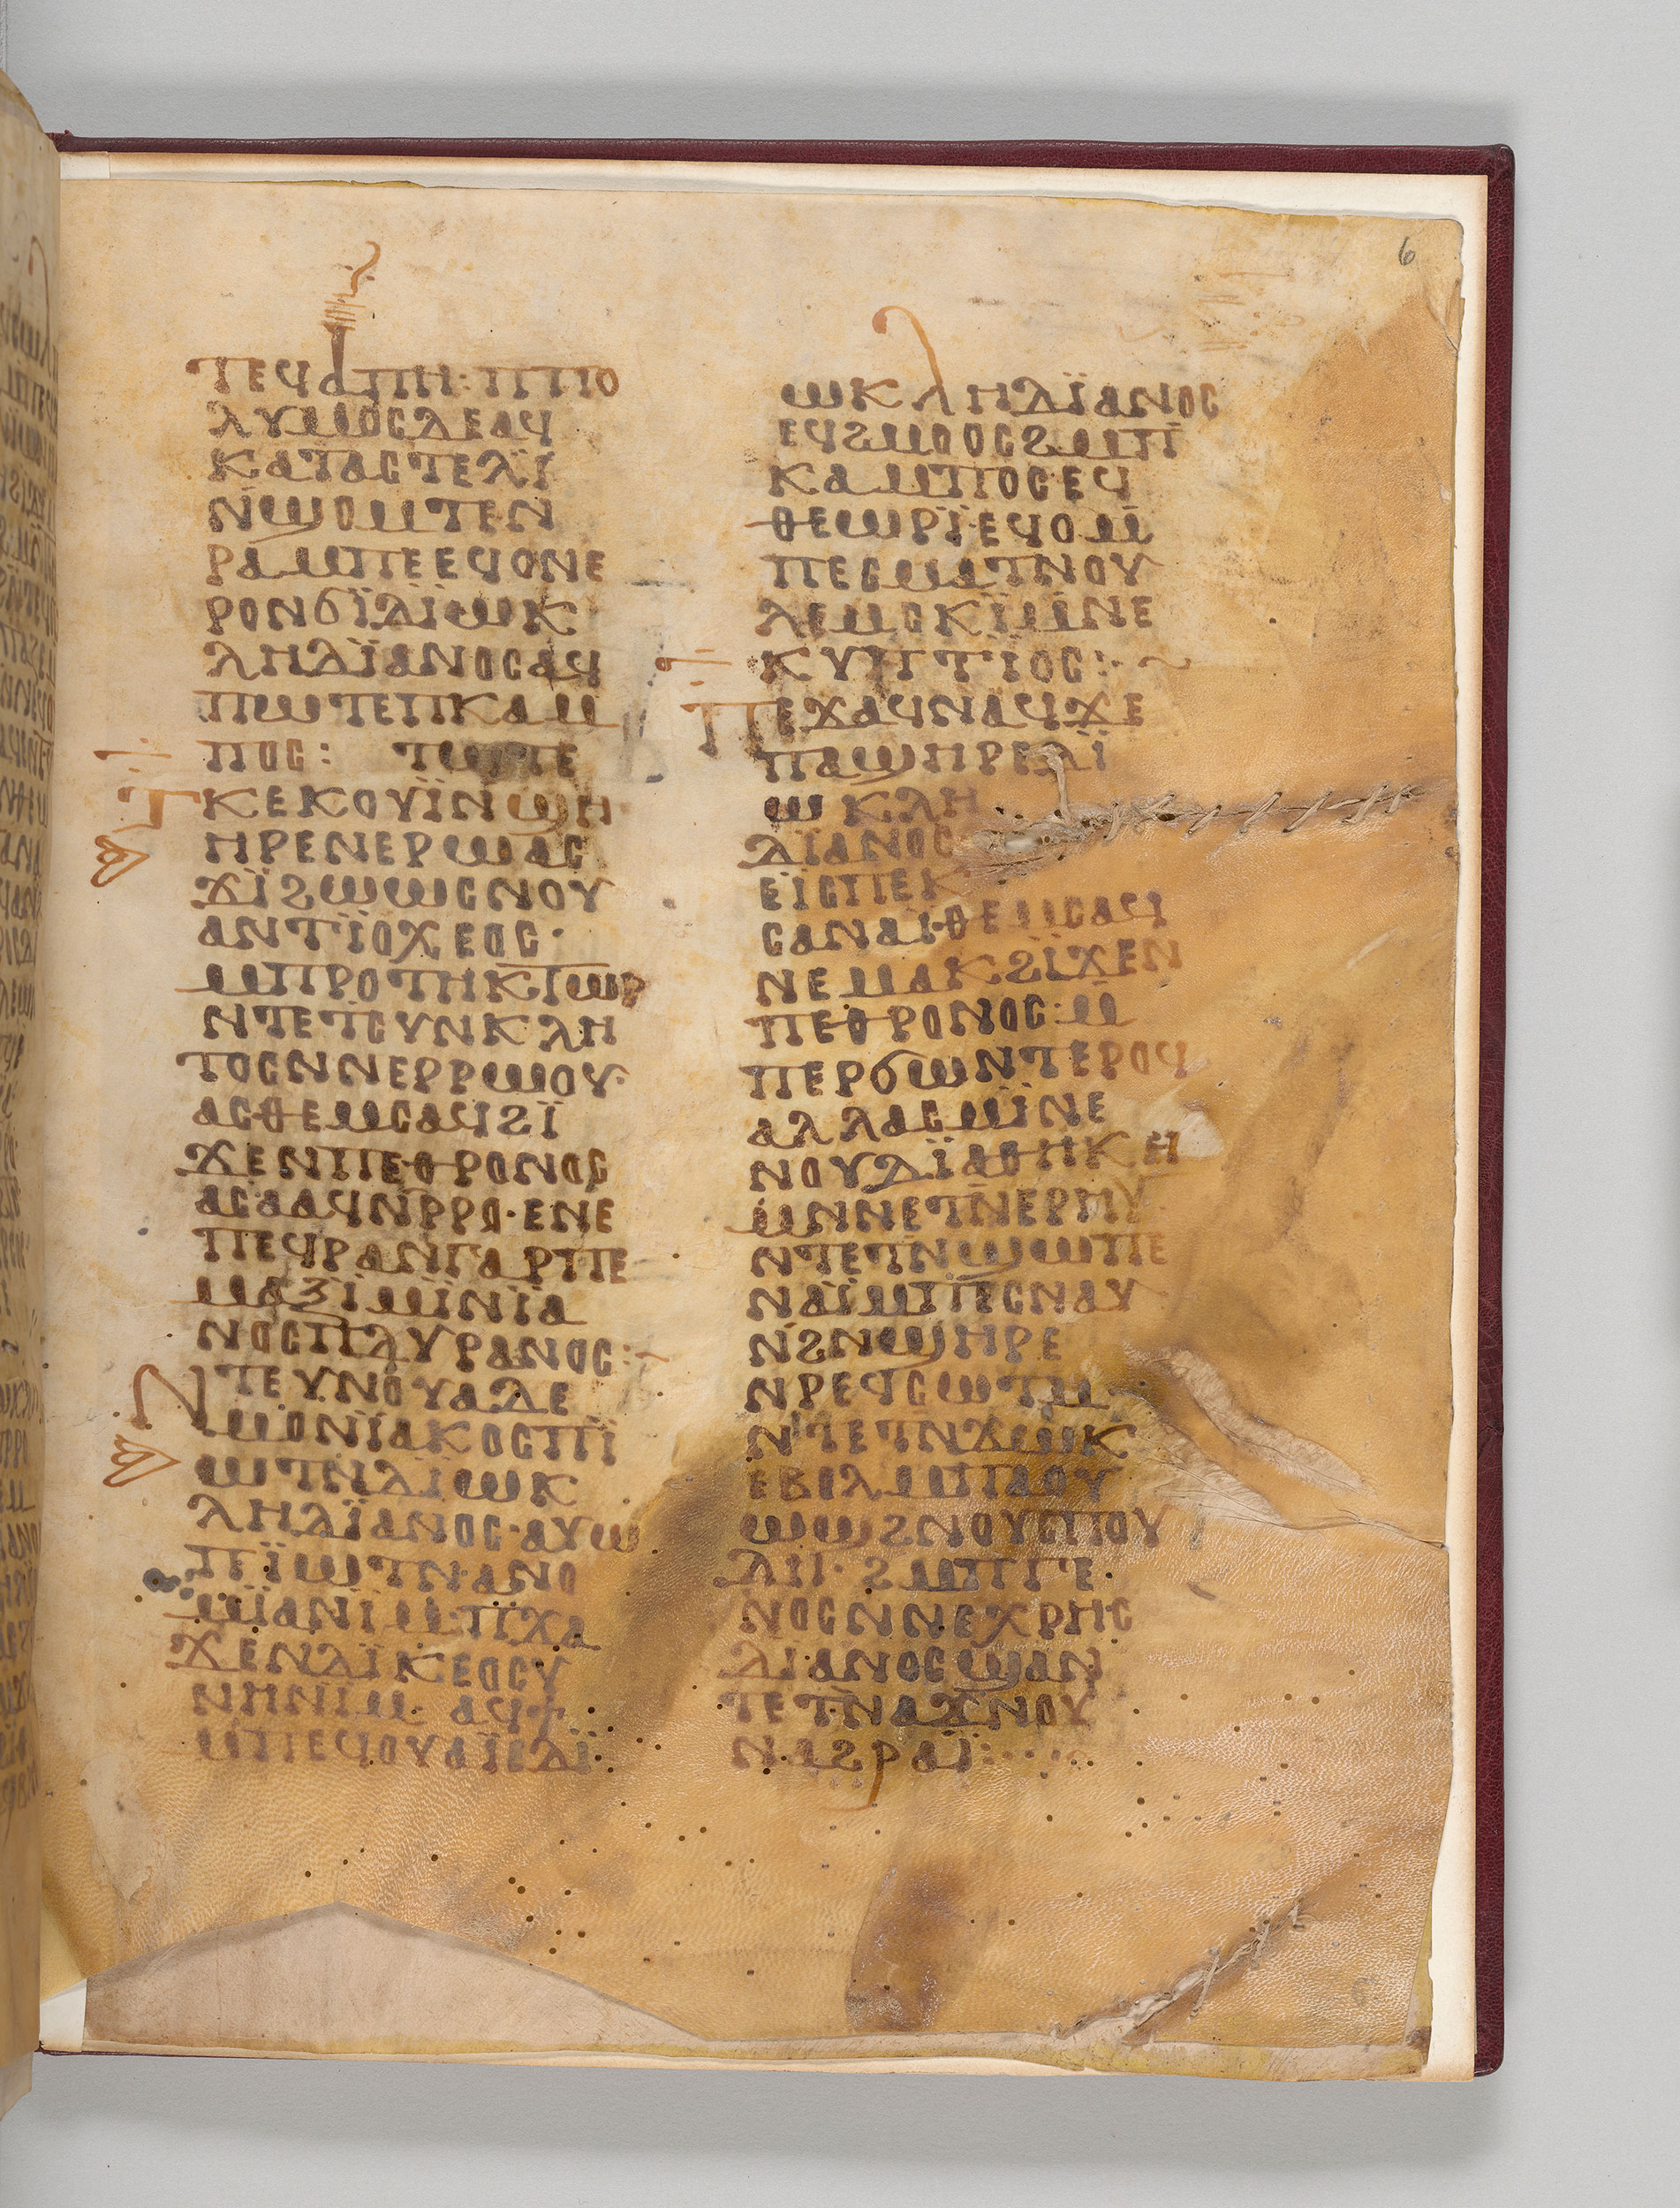 6
ⲧⲉϥⲁⲡⲏ: ⲡⲡⲟ
ⲗⲩⲙⲟⲥⲇⲉⲁϥ
ⲕⲁⲧⲁⲥⲧⲉⲗⲓ̈
ⲛ̄ϣⲟⲙⲧⲉⲛ
ⲣⲁⲙⲡⲉⲉϥⲟⲛⲉ
ⲣⲟⲛϭⲓ̈ⲇⲓ̈ⲱⲕ
ⲗⲏⲇⲓ̈ⲁⲛⲟⲥⲁϥ
ⲡⲱⲧⲉⲡⲕⲁⲙ
ⲡⲟⲥ:
ⲧⲕⲉⲕⲟⲩⲓ̈ⲛ̄ϣⲏ
ⲏⲣⲉⲛⲉⲣⲱⲁⲥ
ϫⲓ̈ϩⲱⲱⲥⲛⲟⲩ
ⲁⲛⲧⲓ̈ⲟⲭⲉⲟⲥ·
ⲙⲡⲣⲟⲧⲏⲕⲧⲱⲣ
ⲛⲧⲉⲧⲥⲩⲛⲕⲗⲏ
ⲧⲟⲥⲛⲛⲉⲣⲣⲱⲟⲩ·
ⲁⲥⲑⲉⲙⲥⲁϥϩⲓ̈
ϫⲉⲛⲡⲉⲑⲣⲟⲛⲟⲥ
ⲁⲥⲁⲁϥⲛ̄ⲣⲣⲟ·ⲉⲛⲉ
ⲡⲉϥⲣⲁⲛⲅⲁⲣⲡⲉ
ⲙⲁⲝⲓ̈ⲙⲓ̈ⲛⲓ̈ⲁ
ⲛⲟⲥⲡⲇⲩⲣⲁⲛⲟⲥ:~
ⲛⲧⲉⲩⲛⲟⲩⲁⲇⲉ
ⲙⲟⲛⲓ̈ⲁⲕⲟⲥⲡⲓ̈
ⲱⲧⲛⲇⲓ̈ⲱⲕ
ⲗⲏⲇⲓ̈ⲁⲛⲟⲥ·ⲁⲩⲱ
ⲡⲓ̈ⲱⲧⲛ·ⲁⲛⲟ
ⲙⲓ̈ⲁⲛⲓⲙ·ⲡϫⲁ
ϫⲉⲛⲇⲓ̈ⲕⲉⲟⲥⲩ
ⲛⲏⲛⲓⲙ· ⲁϥϯ
ⲙⲡⲉϥⲟⲩⲁⲓ̈ⲉⲇⲓ̈
ⲱⲕⲗⲏⲇⲓ̈ⲁⲛⲟⲥ
ⲉϥϩⲙⲟⲟⲥϩⲙⲡ
ⲕⲁⲙⲡⲟⲥ·ⲉϥ
ⲑⲉⲱⲣⲓ̈·ⲉϥⲟⲙ̄
ⲡⲉⲥⲙⲁⲧⲛⲟⲩ
ⲗⲉⲙⲥⲕⲓ̈ⲙ̄ⲛⲉ
ⲕⲩⲡⲧⲓ̈ⲟⲥ: ~
ⲡⲉϫⲁϥⲛⲁϥϫⲉ
ⲡⲁϣⲏⲣⲉⲇⲓ̈
ⲱⲕⲗⲏ
ⲇⲓ̈ⲁⲛⲟⲥ
ⲉⲓ̈ⲥⲡⲉⲕ
ⲥⲁⲛⲁⲓ̈·ⲑⲉⲙⲥⲁϥ
ⲛⲉⲙⲁⲕϩⲓ̈ϫⲉⲛ
ⲡⲉⲑⲣⲟⲛⲟⲥ:ⲙ̄
ⲡⲉⲣϭⲱⲛⲧⲉⲣⲟϥ
ⲁⲗⲗⲁⲥⲙⲓ̈ⲛⲉ
ⲛⲟⲩⲇⲓ̈ⲁⲑⲏⲕⲏ
ⲙ̄ⲛⲛⲉⲧⲛⲉⲣⲏⲩ
ⲛⲧⲉⲧⲛϣⲱⲡⲉ
ⲛⲁⲓ̈ⲙⲡⲉⲥⲛⲁⲩ
ⲛϩⲛϣⲏⲣⲉ
ⲛⲣⲉϥⲥⲱⲧⲙ
ⲛⲧⲉⲧⲛϫⲱⲕ
ⲉⲃⲟⲗⲙⲡⲁⲟⲩ
ⲱϣϩⲛⲟⲩⲥⲡⲟⲩ
ⲇⲏ· ϩⲙⲡⲅⲉ·
ⲛⲟⲥⲛⲛⲉⲭⲣⲏⲥ
ⲇⲓ·ⲁⲛⲟⲥϣⲁⲛ
ⲧⲉⲧⲛⲁϫⲛⲟⲩ
ⲛⲁϩⲣⲁⲓ̈: